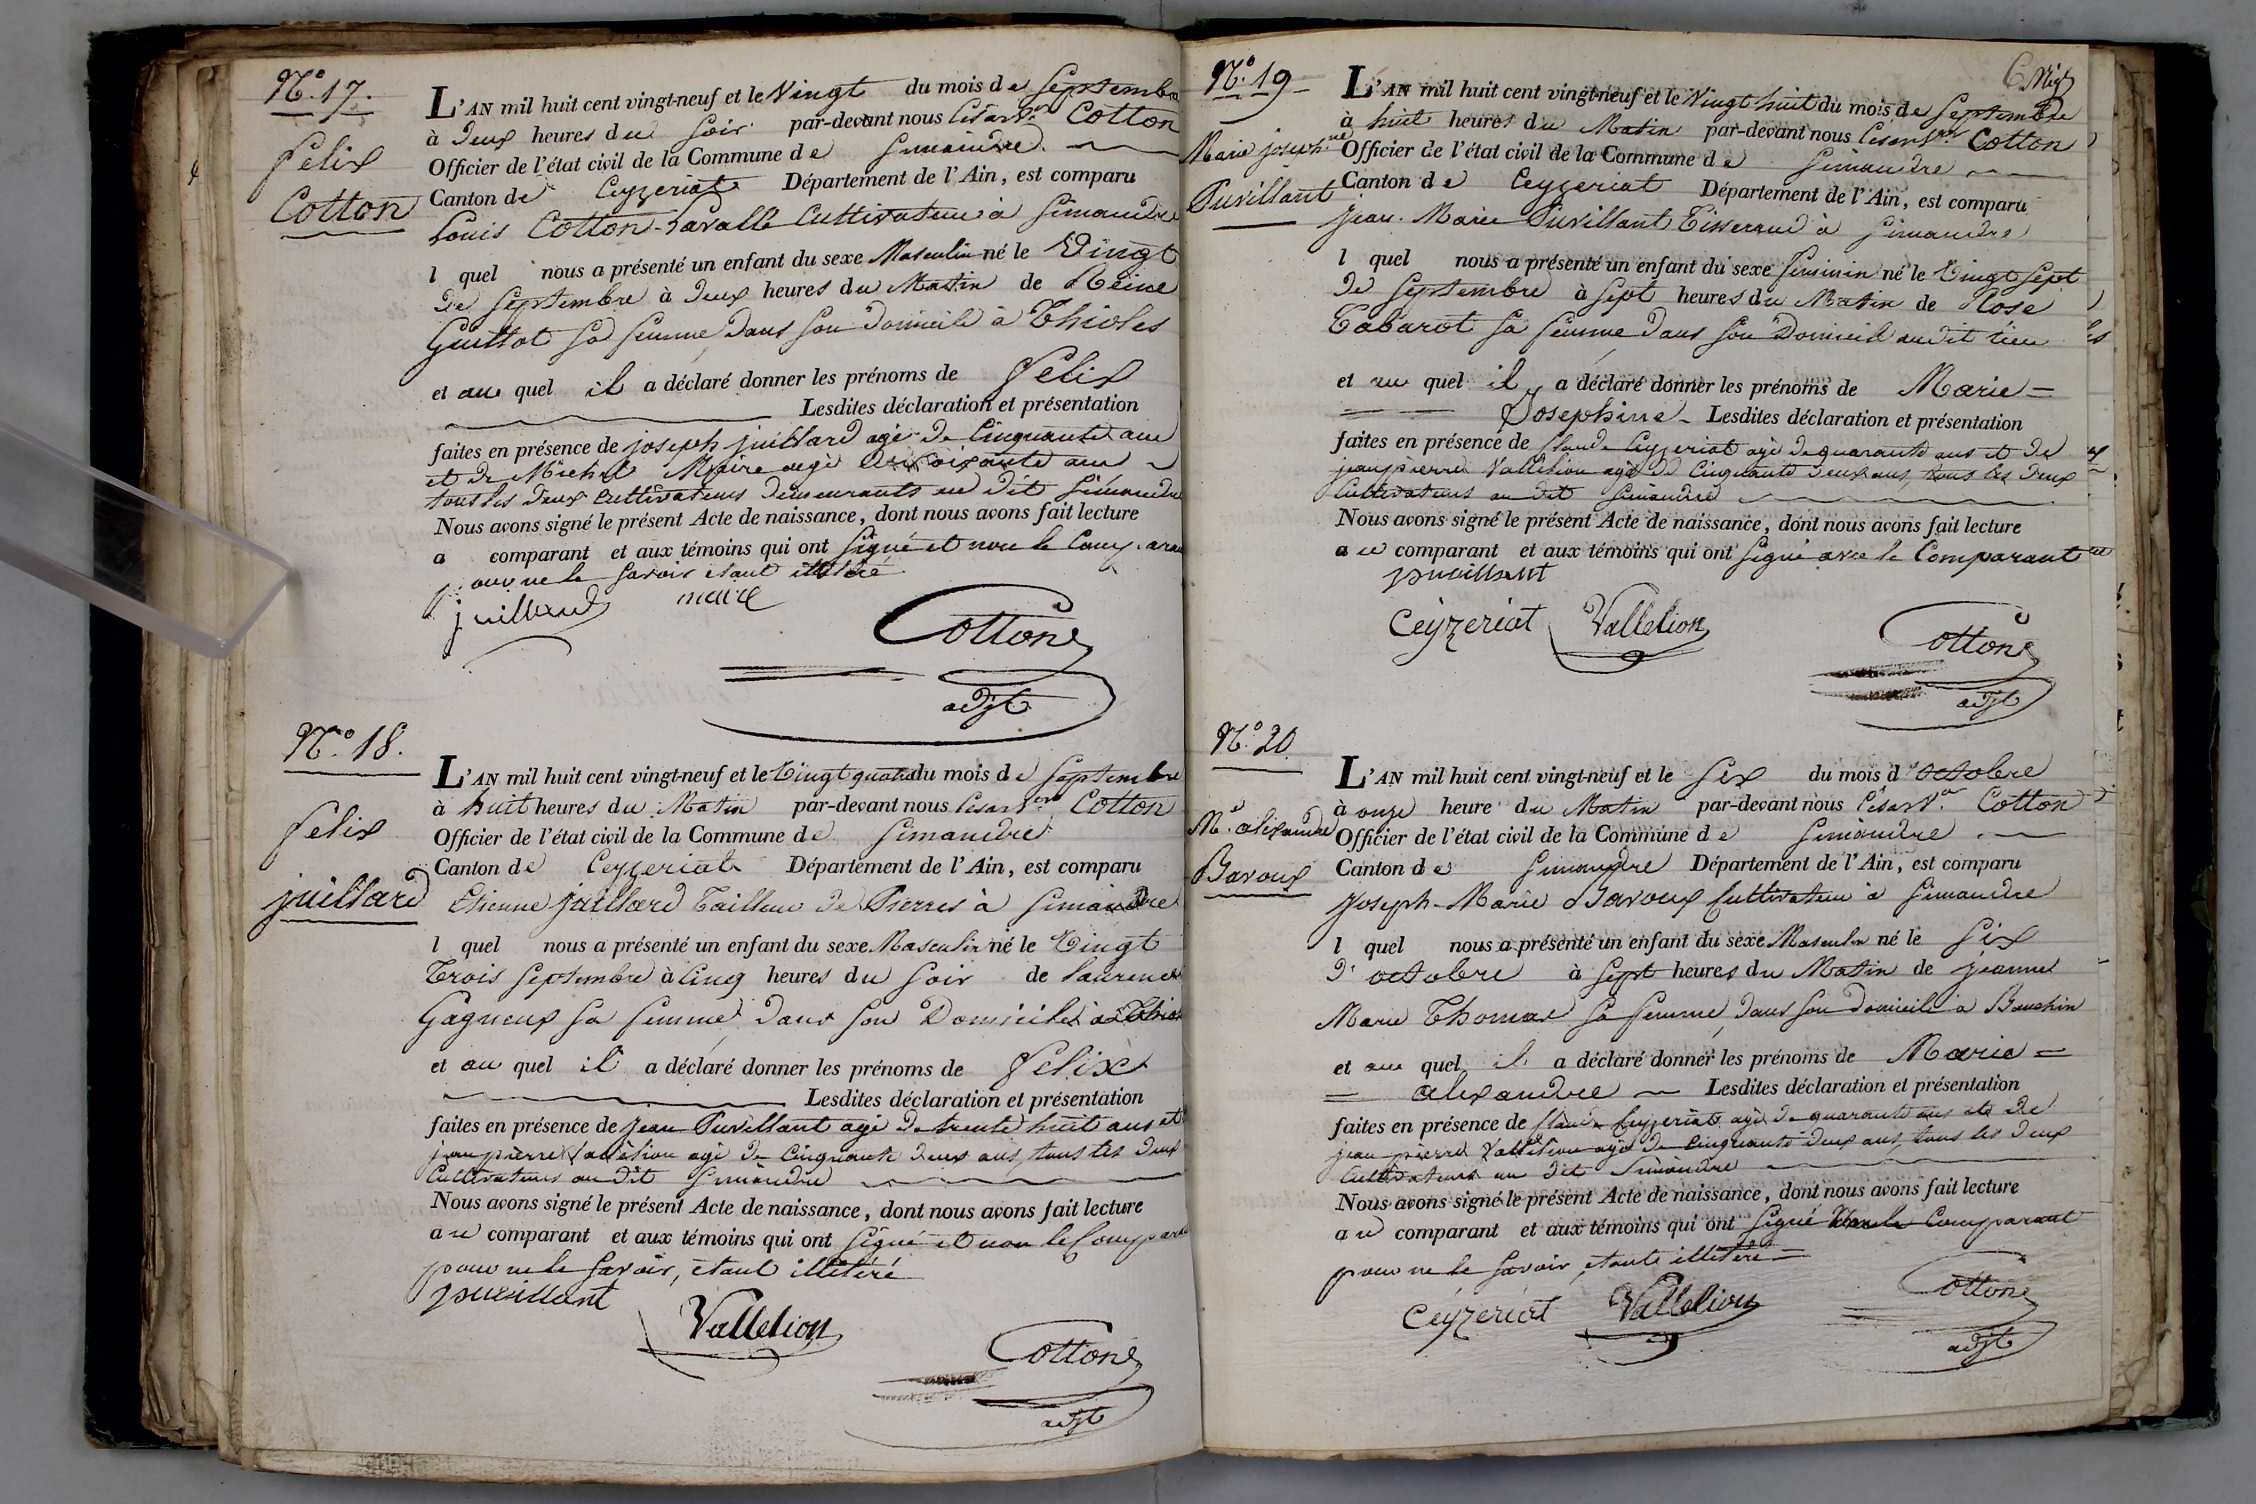 N.o 17.
Felix
Cotton
L'AN mil huit cent vingt-neuf et le Vingt du mois de Septembre
à Deux heures du Soir par-devant nous César Cotton
Officier de l'état civil de la Commune de Simandre
Canton de Ceyzeriat Département de l'Ain, est comparu
Louis Cotton-Lavalle Cultivateur à Simandre
l quel nous a présenté un enfant du sexe Masculin né le Vingt
De Septembre à Deux heures du Matin de Reine
Guillot Sa femme, Dans Son Domicile à Thioles
et au quel il a déclaré donner les prénoms de Felix
Lesdites déclaration et présentation
faites en présence de joseph juillard agé De Cinquante ans
et De Michel Maire agé De Soixante ans
tous les Deux Cultivateurs Demeurants au Dit Simandre
Nous avons signé le présent Acte de naissance, dont nous avons fait lecture
a comparant et aux témoins qui ont Signé et non le Comparant
pour ne le Savoir étant illétéré
juillard maire
Cotton
adjt
N.o 18.
Felix
juillard
L'AN mil huit cent vingt-neuf et le Vingt quatre du mois de Septembre
à huit heures du Matin par-devant nous César Cotton
Officier de l'état civil de la Commune de Simandre
Canton de Ceyzeriat Département de l'Ain, est comparu
Etienne juillard Tailleur De Pierres à Simandre
l quel nous a présenté un enfant du sexe Masculin né le Vingt
Trois Septembre à Cinq heures du Soir de Laurence
Gagneux Sa femme Dans Son Domicile à
et au quel il a déclaré donner les prénoms de Felix
Lesdites déclaration et présentation
faites en présence de jean Puvillant agé De trente huit ans et
jean pierre Vallélion agé De Cinquante Deux ans, tous les Deux
Cultivateurs au Dit Simandre
Nous avons signé le présent Acte de naissance, dont nous avons fait lecture
au comparant et aux témoins qui ont Signé et non le Comparant
pour ne le Savoir, étant illétéré
puvillant
Vallelion
Cotton
adjt
N.o 19
Marie joseph.ne
Puvillant
L'AN mil huit cent vingt-neuf et le Vingt huit du mois de Septembre
à huit heures du Matin par-devant nous César Cotton
Officier de l'état civil de la Commune de Simandre
Canton de Ceyzeriat Département de l'Ain, est comparu
jean-Marie Puvillant Tisserand à Simandre
l quel nous a présenté un enfant du sexe feminin né le Vingt Sept
De Septembre à Sept heures du Matin de Rose
Tabarot Sa femme Dans Son Domicile au dit lieu
et au quel il a déclaré donner les prénoms de Marie=
Josephine - Lesdites déclaration et présentation
faites en présence de Claude Ceyzeriat agé De quarante ans et De
jean pierre Vallélion agé De Cinquante Deux ans, tous les Deux
Cultivateurs au Dit Simandre
Nous avons signé le présent Acte de naissance, dont nous avons fait lecture
au comparant et aux témoins qui ont Signé avec le Comparant
puvillant
Ceyzeriat Vallelion
Cotton
adjt
N.o 20.
M.e alexandre
Bavoux
L'AN mil huit cent vingt-neuf et le Six du mois d'octobre
à onze heure du Matin par-devant nous César Cotton
Officier de l'état civil de la Commune de Simandre
Canton de Simandre Département de l'Ain, est comparu
joseph-Marie Bavoux Cultivateur à Simandre
l quel nous a présenté un enfant du sexe Masculin né le Six
D'octobre à Sept heures du Matin de jeanne
Marie Thomas Sa femme, Dans Son Domicile à Banchin
et au quel il a déclaré donner les prénoms de Marie=
= alexandre - Lesdites déclaration et présentation
faites en présence de Claude Ceyzeriat agé De quarante ans et De
jean pierre Vallélion agé De Cinquante Deux ans, tous les Deux
Cultivateurs au Dit Simandre
Nous avons signé le présent Acte de naissance, dont nous avons fait lecture
au comparant et aux témoins qui ont Signé Comparant
pour ne le Savoir, étant illétéré=
Ceyzeriat Vallelion
Cotton
adjt